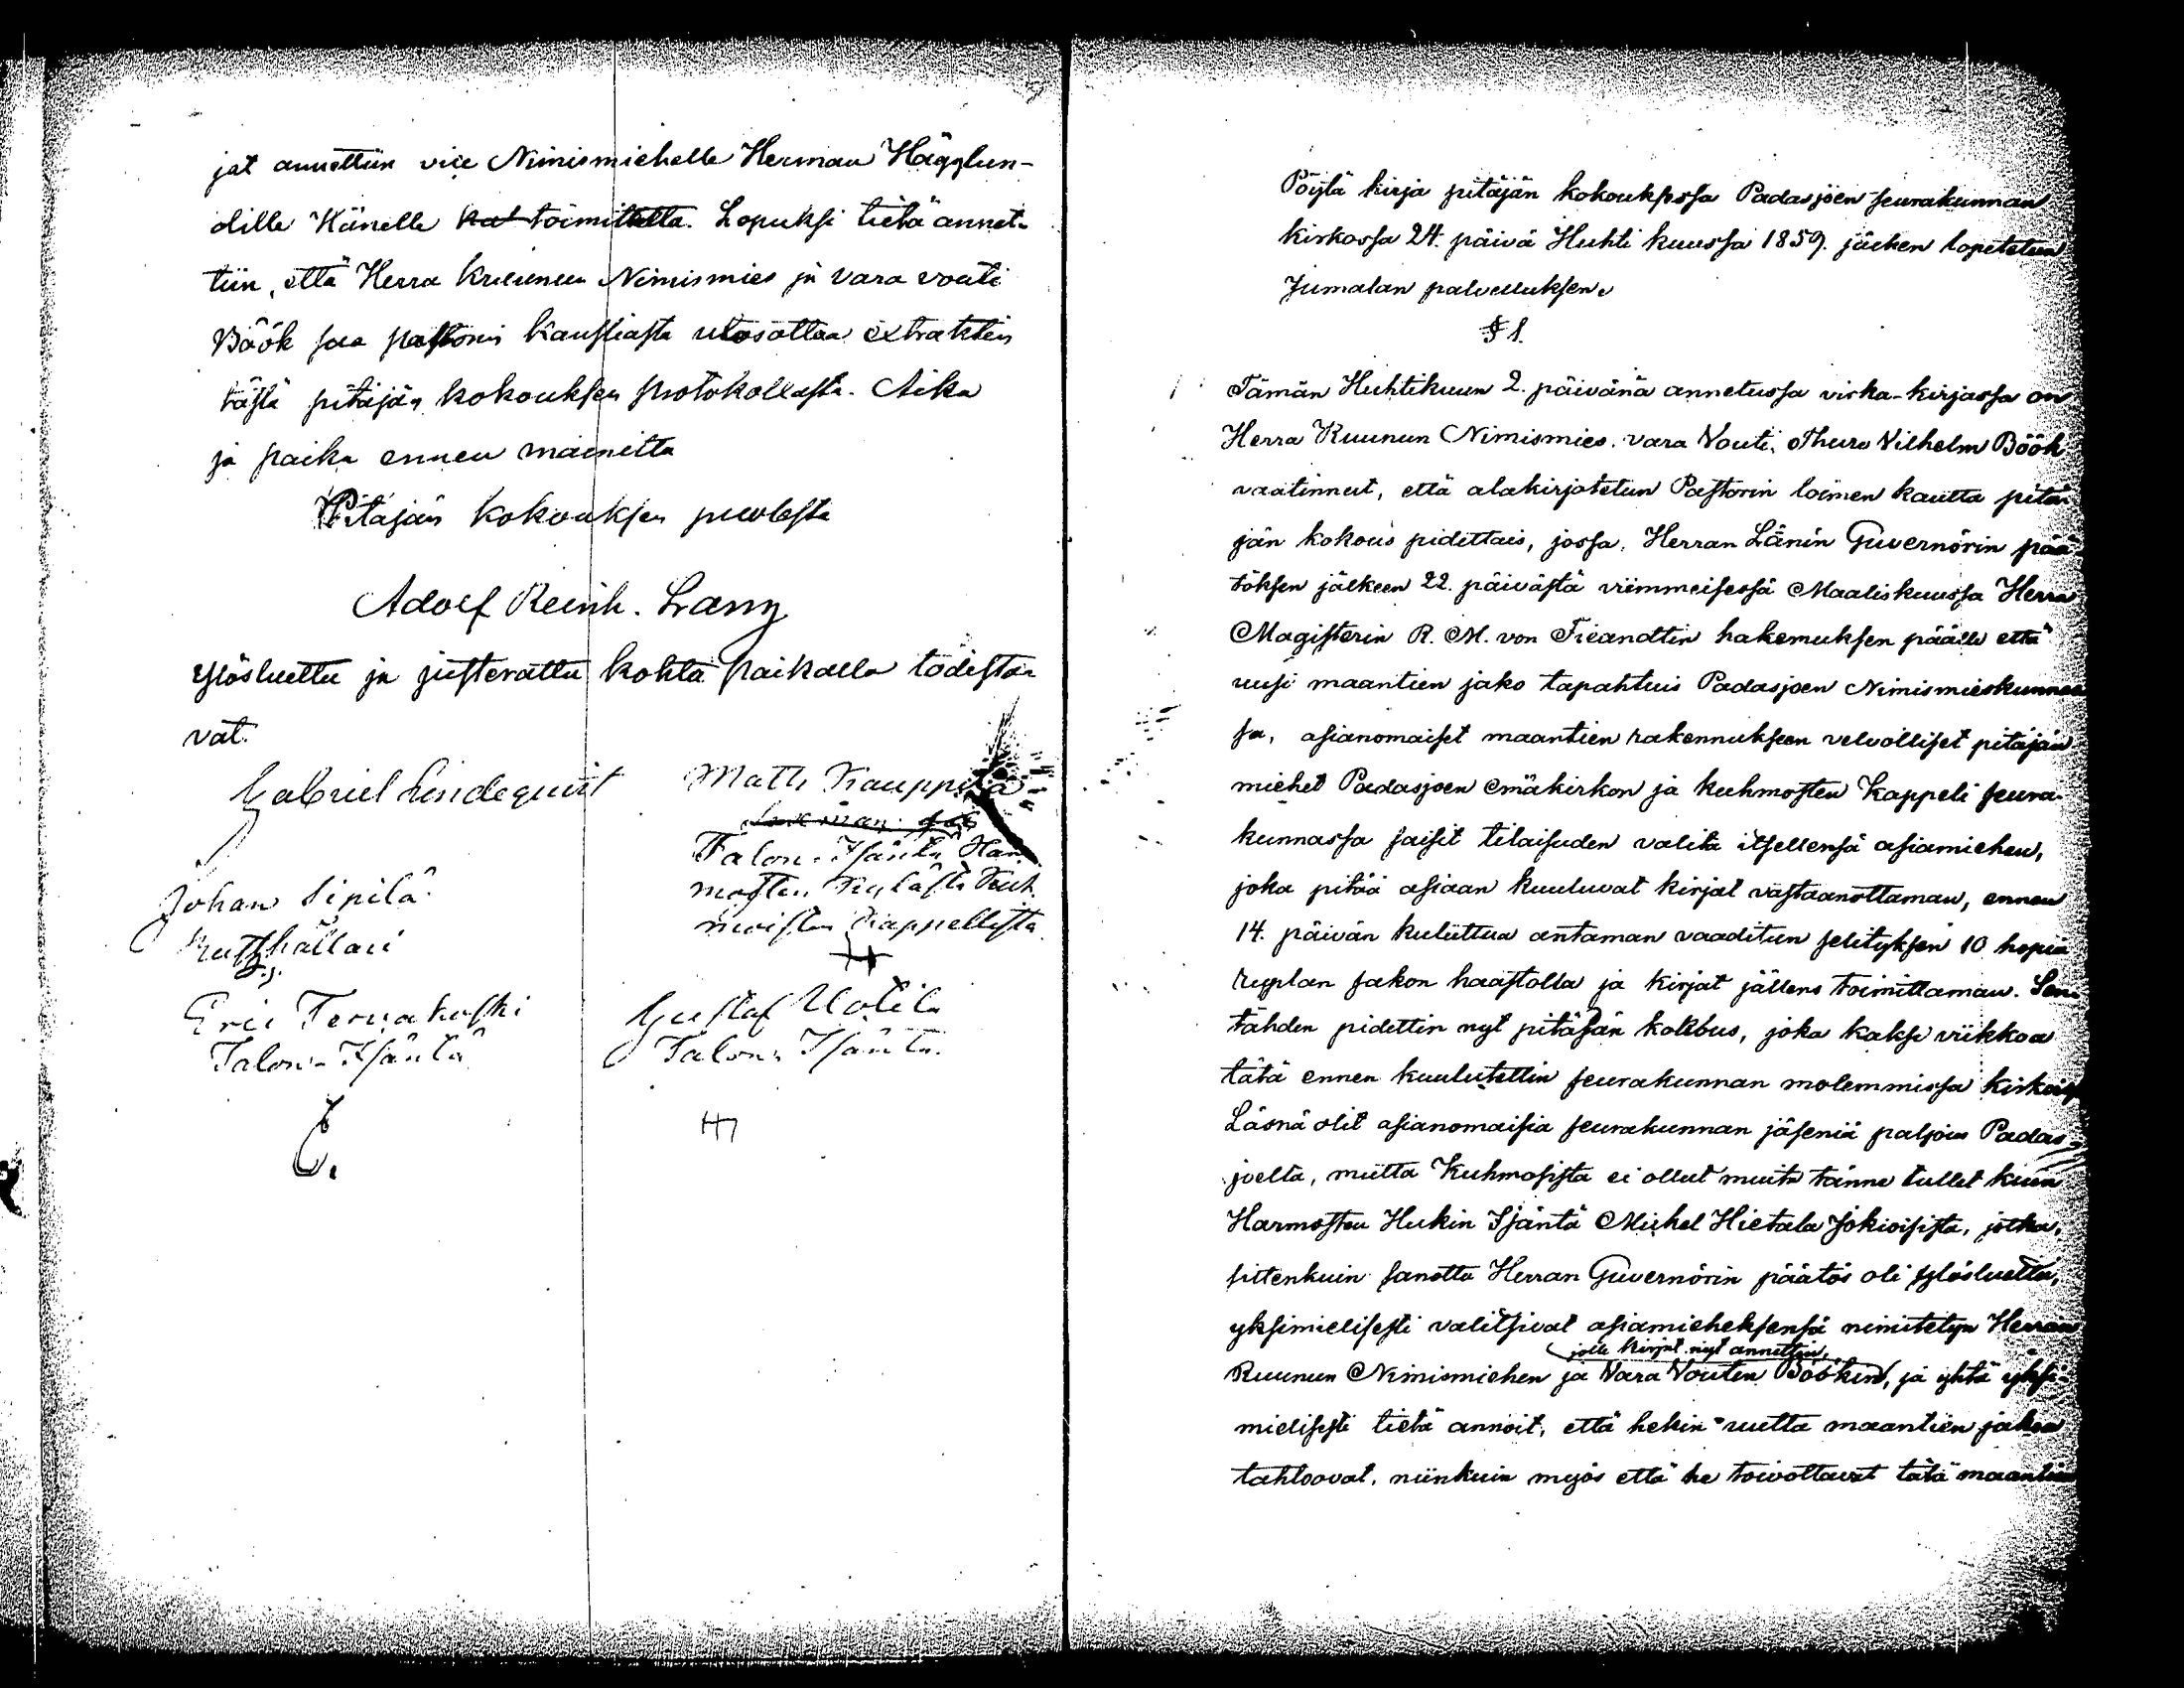 jat annettiin vice Nimismiehelle Herman Hägglun-
dille Hänelle toimittetta. Lopuksi tietä annet-
tiin, että Herra Kruunun Nimismies ja vara vouti
Böök saa pastorin kansliasta ulosottaa extraktin
tästä pitäjän kokouksen protokollasta. Aika
ja paika ennen mainittu
Pitäjän kokouksen puolesta
Adolf Reinh. Lang
Ylösluettu ja justerattu kohta paikalla todista-
vat.
Gabriel Lindequist
Johan Sipilä
Rusthållari
Eric Tervakoski
Talon-Isäntä
Matts Kauppila
Talon-Isäntä Har-
mosten Kylästä Kuh
moisten Kappelista
Gustaf Uotila
Talon-Isäntä
Pöytä kirja pitäjän kokouksessa Padasjoen seurakunnan
kirkossa 24. päivä Huhti kuussa 1859. jäeken lopetetun
Jumalan palvelluksen.
§ 1.
Tämän Huhtikuun 2. päivänä annetussa virka-kirjassa on
Herra Ruunun Nimismies. vara Vouti. Thure Vilhelm Böök
vaatinnut, että alakirjotetun Pastorin loimen kautta pitä-
jän kokous pidettäis, jossa, Herran Länin Guvernörin pää-
töksen jälkeen 22. päivästä viimmeisessä Maaliskuussa Herra
Magisterin R. M. von Fieandtin hakemuksen päälle että
uusi maantien jako tapahtuis Padasjoen Nimismieskunnas
sa, asianomaiset maantien rakennukseen velvolliset pitäjän
miehet Padasjoen emäkirkon ja Kuhmosten Kappeli seura-
kunnassa saisit tilaisuden valita itsellensä asiamiehen,
joka pitää asiaan kuuluvat kirjat vastaanottaman, ennen
14. päivän kuluttua antaman vaaditun selityksen 10 hopia
ruplan sakon haastolla ja kirjat jällens toimittaman. Sen-
tähden pidettin nyt pitäjän kokous, joka kaksi viikkoa
tätä ennen kuulutettin seurakunnan molemmissa kirkois
Läsnä olit asianomaisia seurakunnan jäseniä paljon Padas-
joelta, mutta Kuhmosista ei ollut muita tänne tullet kuin
Harmosten Hukin Isäntä Michel Hietala Jokioisista, jotka,
sittenkuin sanottu Herran Guvernörin päätös oli ylösluettu,
yksimielisesti valitsivat asiamieheksensä nimitetyn Herran
jolle kirjat nyt annettin,
Ruunun Nimismiehen ja Vara Voutin Böökin, ja yhtä yksi-
mielisesti tietä annoit, että hekin uutta maantien jakoa
tahtoovat, niinkuin myös että he toivottavat tätä maantien